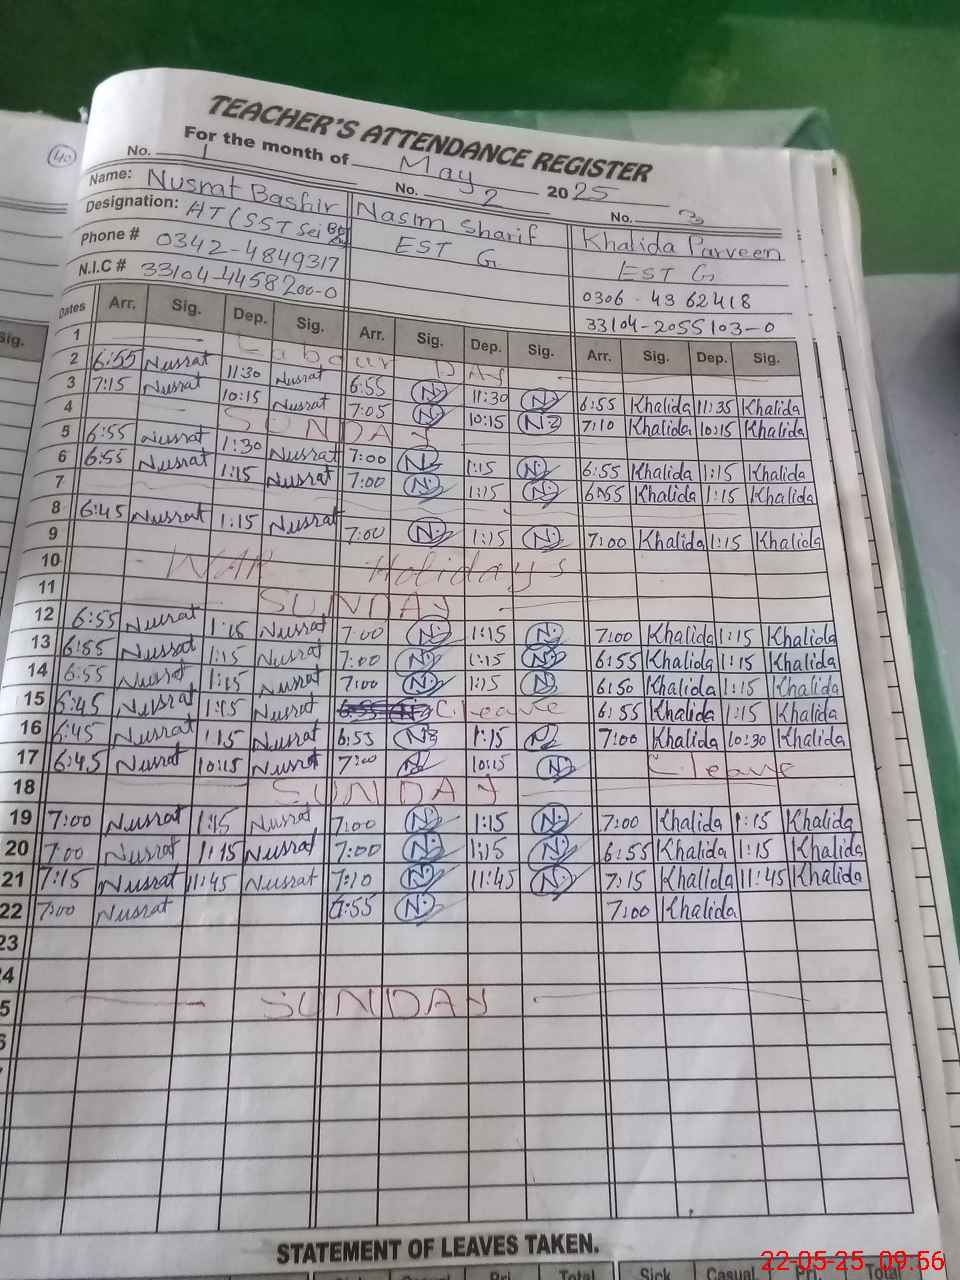 40
TEACHER'S ATTENDANCE REGISTER
For the month of May 2025
No. 1 No. 2 No. 3
Name: Nusrat Bashir Nasim Sharif Khalida Parveen
Designation: HT (SST Sci EST G EST G
Phone # 0342-4849317 0306-4362418
N.I.C # 33104-4458200-0 33104-2055103-0
Dates Arr. Sig. Dep. Sig. Arr. Sig. Dep. Sig. Arr. Sig. Dep. Sig.
Sig.
1 Labour DAY
2 6:55 Nusrat 11:30 Nusrat 6:55 N 11:30 N 6:55 Khalida 11:35 Khalida
3 7:15 Nusrat 10:15 Nusrat 7:05 N 10:15 N 7:10 Khalida 10:15 Khalida
4 SUNDAY
5 6:55 Nusrat 1:30 Nusrat 7:00 N 1:15 N 6:55 Khalida 1:15 Khalida
6 6:55 Nusrat 1:15 Nusrat 7:00 N 1:15 N 6:55 Khalida 1:15 Khalida
7
8 6:45 Nusrat 1:15 Nusrat 7:00 N 1:15 N 7:00 Khalida 1:15 Khalida
9
10 WAR Holidays
11 SUNDAY
12 6:55 Nusrat 1:15 Nusrat 7:00 N 1:15 N 7:00 Khalida 1:15 Khalida
13 6:55 Nusrat 1:15 Nusrat 7:00 N 1:15 N 6:55 Khalida 1:15 Khalida
14 6:55 Nusrat 1:15 Nusrat 7:00 N 1:15 N 6:50 Khalida 1:15 Khalida
15 6:45 Nusrat 1:15 Nusrat C. Leave 6:55 Khalida 1:15 Khalida
16 6:45 Nusrat 1:15 Nusrat 6:53 N 1:15 N 7:00 Khalida 10:30 Khalida
17 6:45 Nusrat 10:15 Nusrat 7:00 N 10:15 N C leave
18 SUNDAY
19 7:00 Nusrat 1:15 Nusrat 7:00 N 1:15 N 7:00 Khalida 1:15 Khalida
20 7:00 Nusrat 1:15 Nusrat 7:00 N 1:15 N 6:55 Khalida 1:15 Khalida
21 7:15 Nusrat 11:45 Nusrat 7:10 N 11:45 N 7:15 Khalida 11:45 Khalida
22 7:00 Nusrat 6:55 N 7:00 Khalida
23
24
5 SUNDAY
6
STATEMENT OF LEAVES TAKEN.
Total Sick Casual Pri. Total
22-05-25 09:56